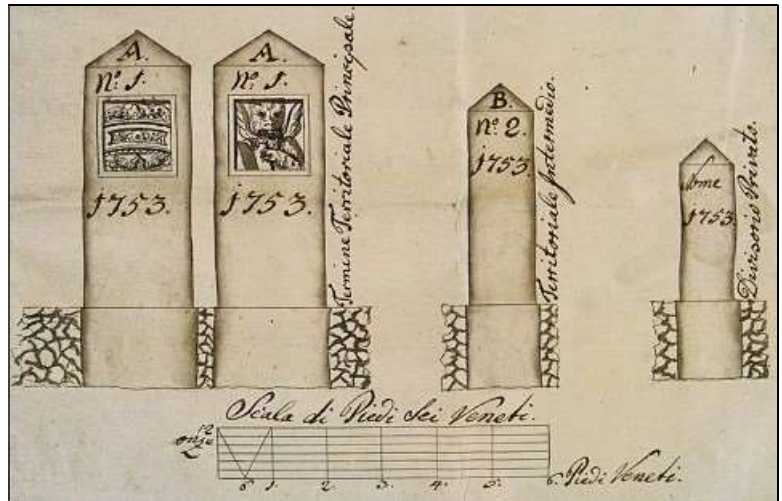 A.
Nº. 1.
1753.
A.
Nº. 1.
1753.
Termine Territoriale Principale.
B.
Nº. 2.
1753.
Territoriale Intermedio.
Nome
1753.
Divisorio Privato.
Scala di Piedi Sei Veneti.
12
6 1. 2. 3. 4. 5. 6. Piedi Veneti.